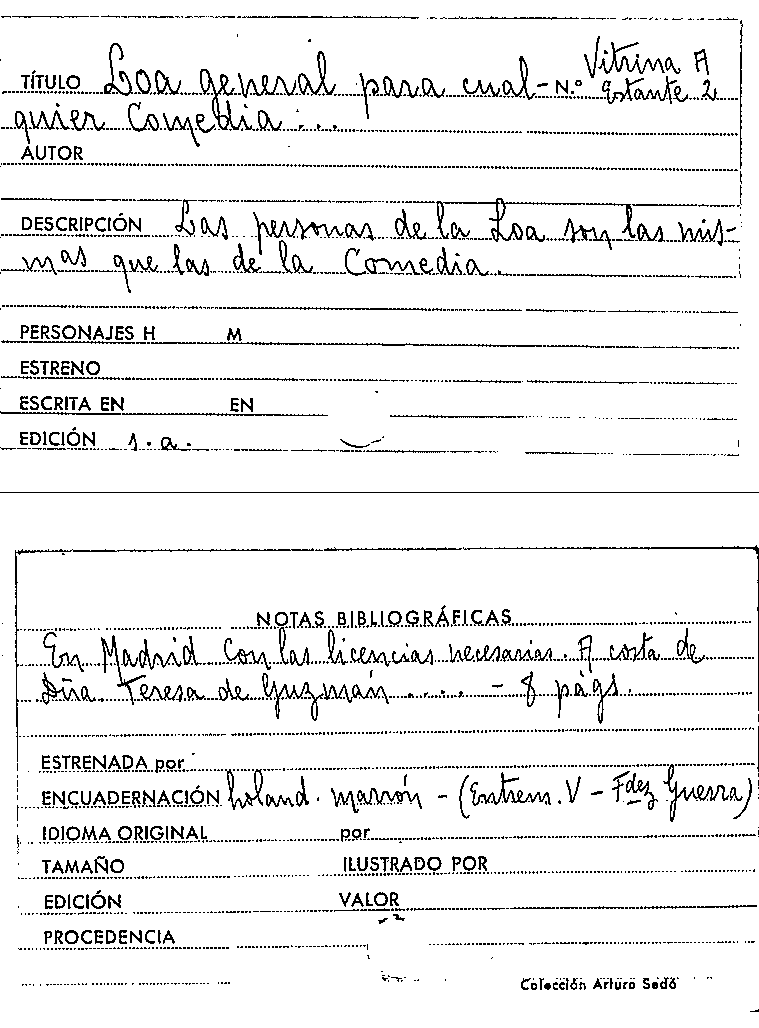 TÍTULO Loa general para cual- N.º Vitrina A Estante 2
quier Comedia...
AUTOR
DESCRIPCIÓN Las personas de la Loa son las mis-
mas que las de la Comedia.
PERSONAJES H M
ESTRENO
ESCRITA EN EN
EDICIÓN s.a.
NOTAS BIBLIOGRÁFICAS
En Madrid con las licencias necesarias. A costa de
Dña. Teresa de Guzmán .... - 8 págs.
ESTRENADA por
ENCUADERNACIÓN holand. marrón - (Entrem. V - Fdez Guerra)
IDIOMA ORIGINAL por
TAMAÑO ILUSTRADO POR
EDICIÓN VALOR
PROCEDENCIA
Colección Arturo Sedó